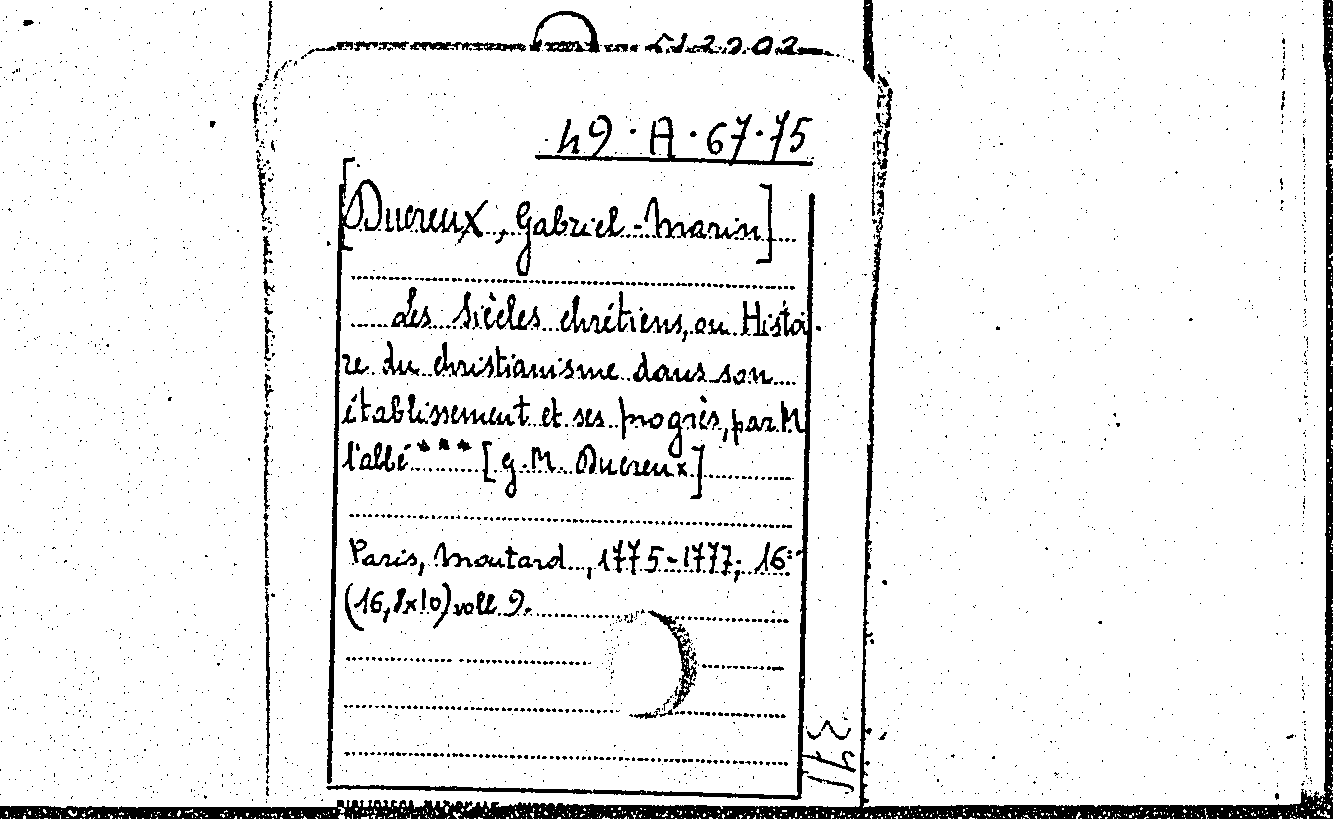 49·A·67·75
[Ducreux, Gabriel-Marin]
Les Siècles chrétiens, ou Histoi-
re du christianisme dans son
établissement et ses progrès, par M
l'abbé *** [G. M. Ducreux]
Paris, Moutard, 1775-1777; 16º
(16,8x10) voll 9.